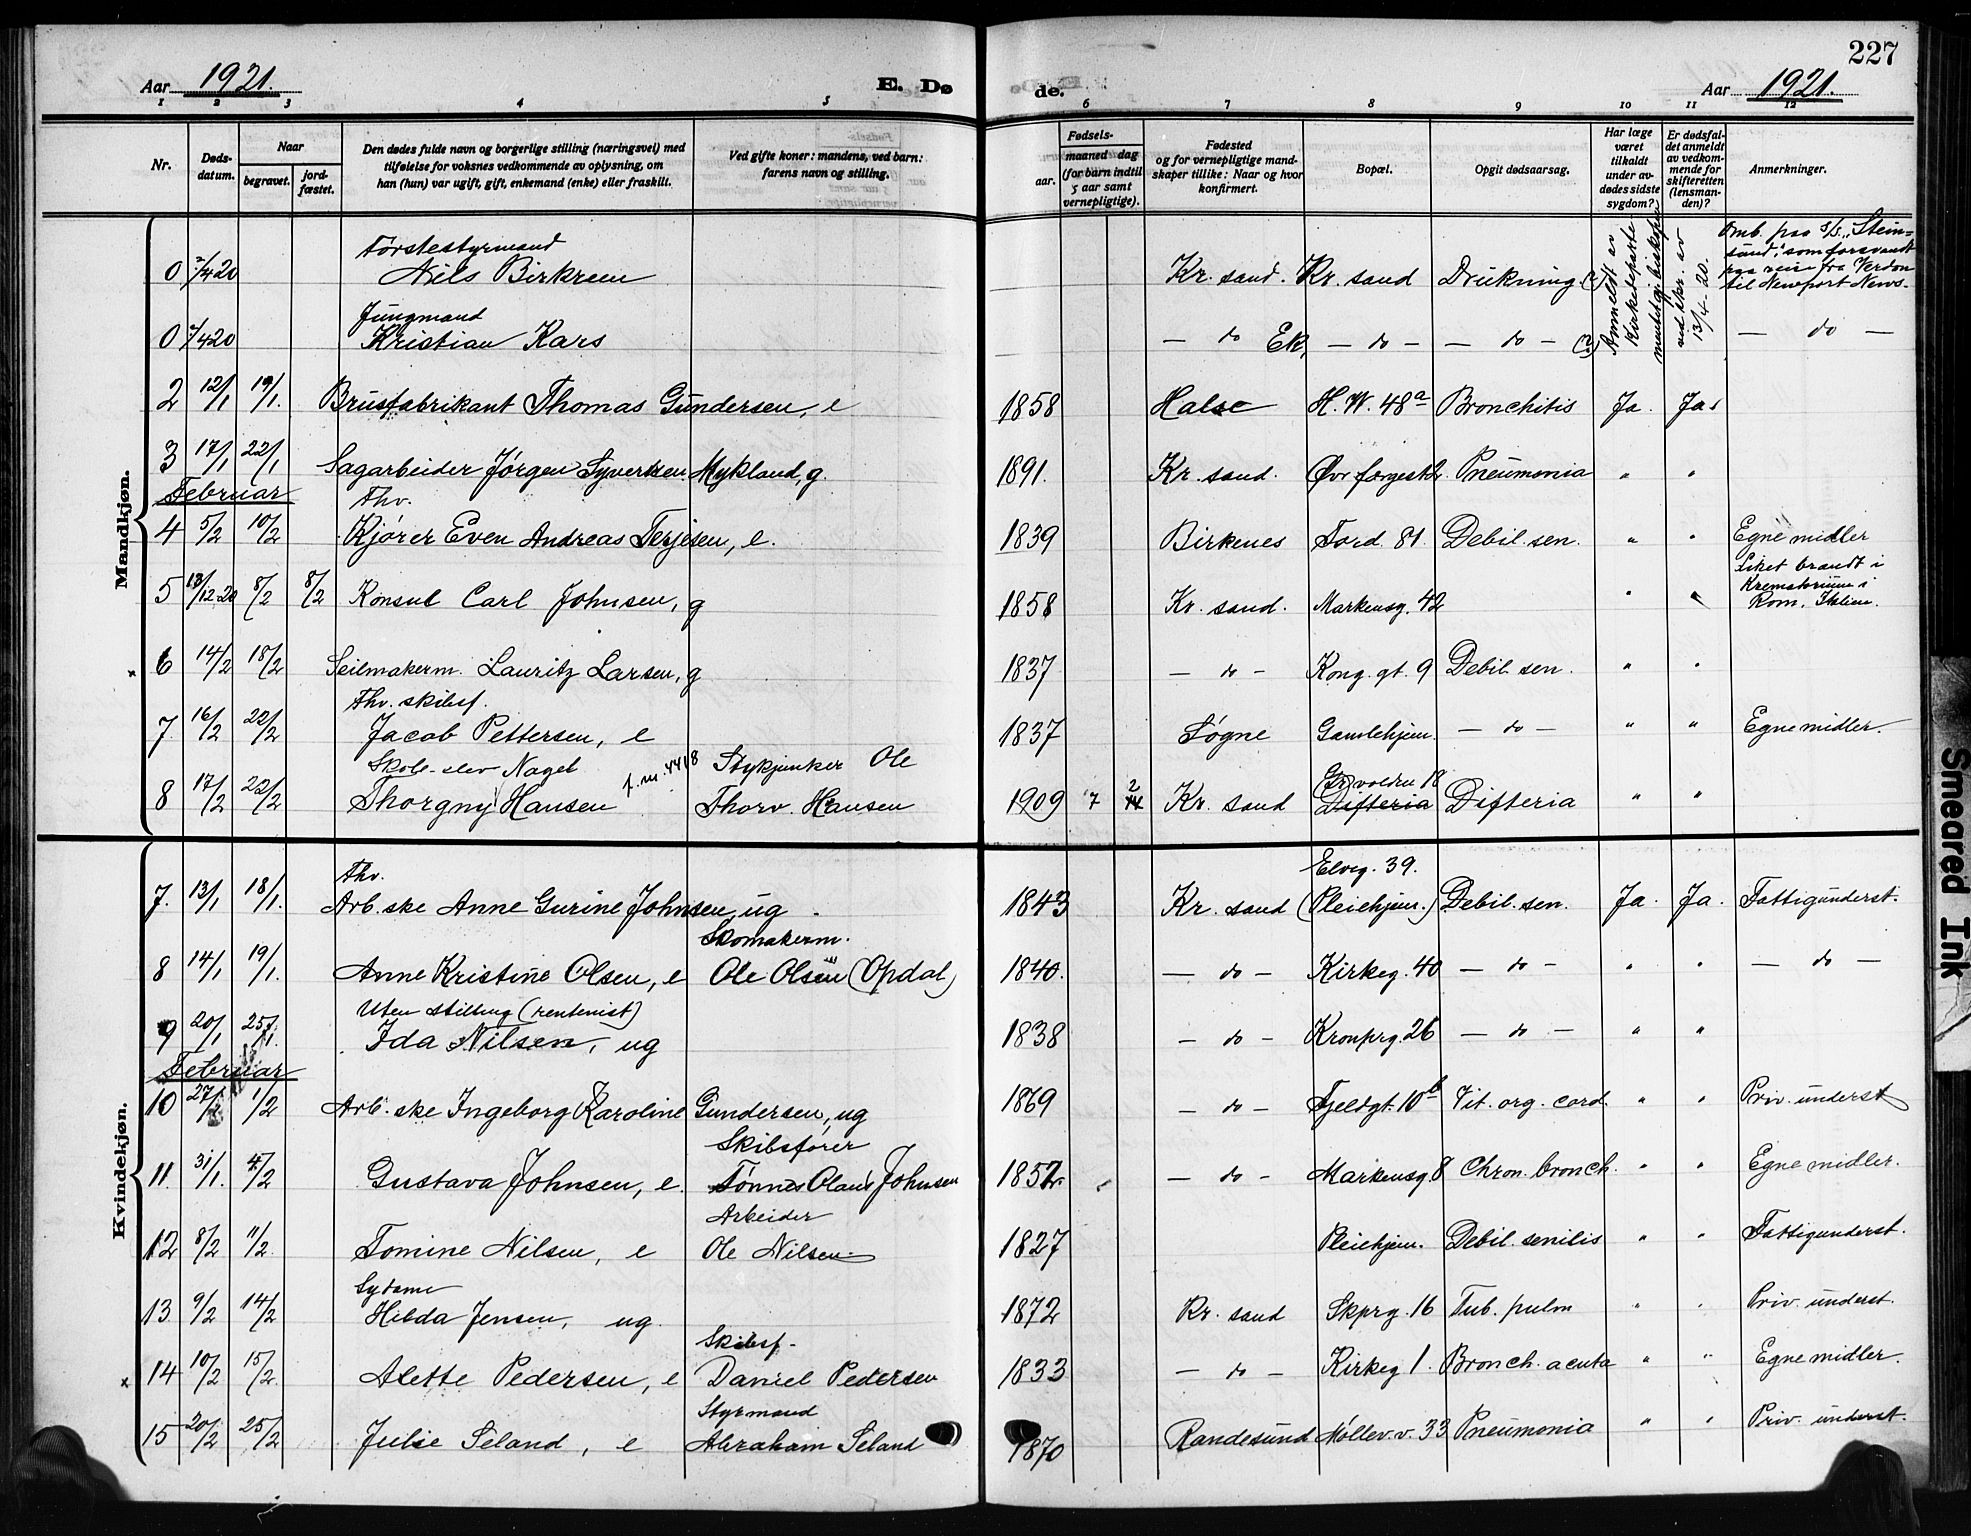 227
Aar 1921. E. Dø de. Aar 1921.
1 2 3 4 5 6 7 8 9 10 11 12
Nr. Døds-datum. Naar begravet. jord-fæstet. Den dødes fulde navn og borgerlige stilling (næringsvei) med tilføielse for voksnes vedkommende av oplysning, om han (hun) var ugift, gift, enkemand (enke) eller fraskilt. Ved gifte koner: mandens, ved barn: farens navn og stilling. Fødsels- aar. maaned dag (for barn indtil 5 aar samt vernepligtige). Fødested og for vernepligtige mandskaper tillike: Naar og hvor konfirmert. Bopæl. Opgit dødsaarsag. Har læge været tilkaldt under avdødes sidste sygdom? Er dødsfaldet anmeldt av vedkommende for skifteretten (lensmanden)? Anmerkninger.
Mandkjøn.
0 2/4 20 Førstestyrmand Nils Birkrem Kr. sand. Kr. sand Drukning (?) Anmeldt av Kirkedeparte mentet gj. biskopen ved skr. av 13/4-20. Omb. paa S/S. "Stein= sund", som forsvandt paa reise fra Verdon til Newport News.
0 2/4 20 Jungmand Kristian Kars — do Ek. — do — — do — (?) — do —
2 12/1 19/1. Brusfabrikant Thomas Gundersen, e 1858 Halse H. W. 48a Bronchitis Ja. Ja.
3 17/1 22/1 Sagarbeider Jørgen Syvertsen Mykland, g. 1891. Kr. sand. Øvr. færgest 2. Pneumonia " "
Februar
4 5/2 10/2 Fhv. Kjører Even Andreas Terjesen, e. 1839 Birkenes Tord. 81. Debil. sen. " " Egne midler
5 13/12 20 8/2 8/2 Konsul Carl Johnsen, g 1858 Kr. sand. Markensg. 42 " " Liket brændt i Krematorium i Rom. Italien.
6 14/2 18/2 Seilmakerm. Lauritz Larsen, g 1837 — do — Kong. gt. 9 Debil. sen. " "
7 16/2 22/2 Fhv. skibsf. Jacob Pettersen, e 1837 Søgne Gamlehjem. — do — " " Egne midler.
8 17/2 22/2 Skole-elev Nagel Thorgny Hansen f. nr. 4418 Stykjunker Ole Thorv. Hansen 1909 7 2 14 Kr. sand volden 18 Difteria Difteria " "
Kvindekjøn.
7. 13/1 18/1. Fhv. Arb.ske Anne Gurine Johnsen, ug. 1843 Kr. sand Elveg. 39. (Pleiehjem.) Debil. sen. Ja. Ja. Fattigunderst.
8 14/1 19/1. Anne Kristine Olsen, e Skomakerm. Ole Olsen (Opdal) 1840. — do — Kirkeg. 40 — do — " " — do —
9 20/1 25/1. Uten stilling (rentenist) Ida Nilsen, ug 1838 — do — Kronprg. 26 — do — " "
Februar
10 27/1 1/2 Arb.ske Ingeborg Karoline Gundersen, ug 1869 — do — Fjeldgt. 10b Vit. org. cord. " " Priv. underst
11. 31/1. 4/2 Gustava Johnsen, e. Skibsfører Tønnes Olaus Johnsen 1852. — do — Markensg. 8 Chron. bronch. " " Egne midler.
12 8/2 11/2. Tomine Nilsen, e Arbeider Ole Nilsen. 1827 Pleiehjem. Debil. senilis " " Fattigunderst.
13. 9/2 14/2 Sydame Hilda Jensen, ug. 1872 Kr. sand Skprg. 16 Tub. pulm " " Priv. underst.
14 10/2 15/2. Alette Pedersen, e Skibsf. Daniel Pedersen 1833 — do — Kirkeg 1. Bronch. acuta " " Egne midler.
15 20/2 25/2 Julie Seland, e Styrmand Abraham Seland 1870 Randesund Møllev. v. 33 Pneumonia " " Priv. underst.
Smeared Ink